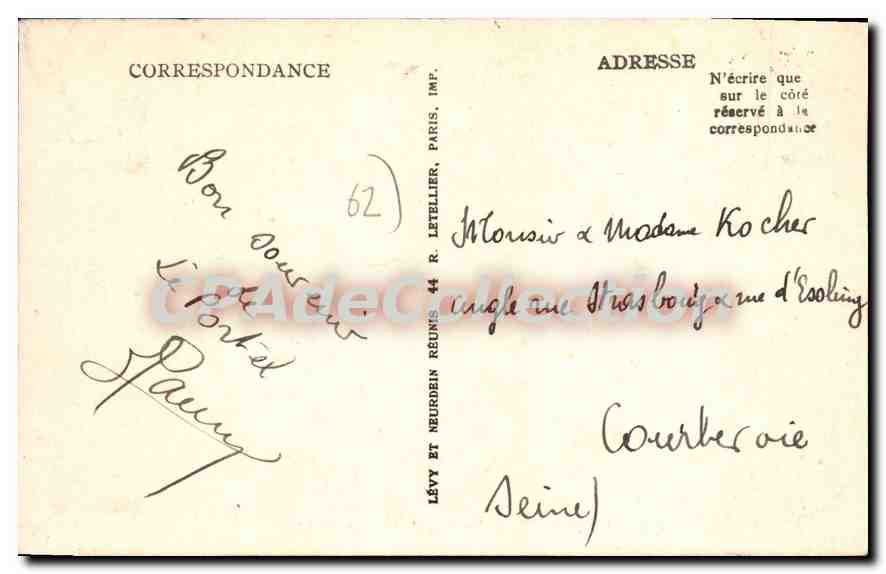 CORRESPONDANCE
ADRESSE
N'écrire que
sur le côté
réservé à la
correspondance
62)
Bon souvenir
de
Le portel
LÉVY ET NEURDEIN RÉUNIS 44 R. LETELLIER, PARIS, IMP.
Monsier & Madame Kocher
angle rue Strasbourg & rue d'Essling
Courbevoie
Seine)
CPAdeCollection